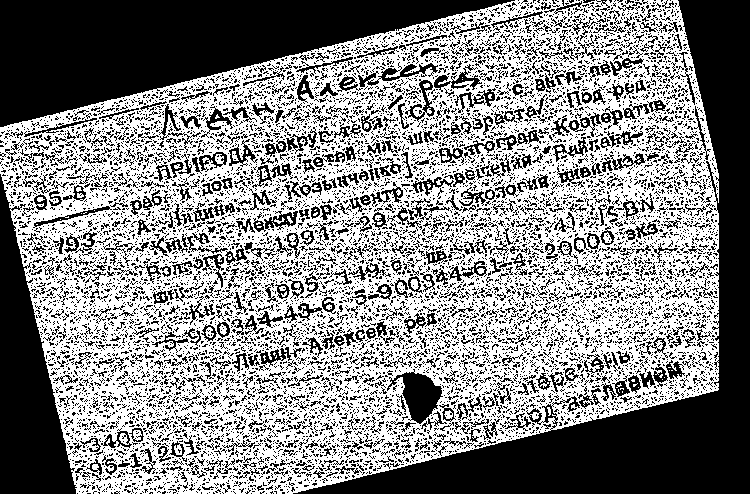 Лидин, Алексей
ред
ПРИРОДА вокруг тебя. [Сб. Пер. с англ. пере-
раб. и доп. Для детей мл. шк. возраста/ Под ред
95-8
А. Лидина, М. Козынченко].- Волгоград: Кооператив
/93
"Книга": Междунар. центр просвещения "Вайланд-
Волгоград", 1994.- 29 см.- (Экология цивилиза-
ции
Кн. 1, 1995. 149 с., цв. ил. ISBN
5-900344-43-6, 5-900344-61-4, 20000 экз.
1. Лидин, Алексей, ред
Полный перечень
см под заглавием
3400
95-11201